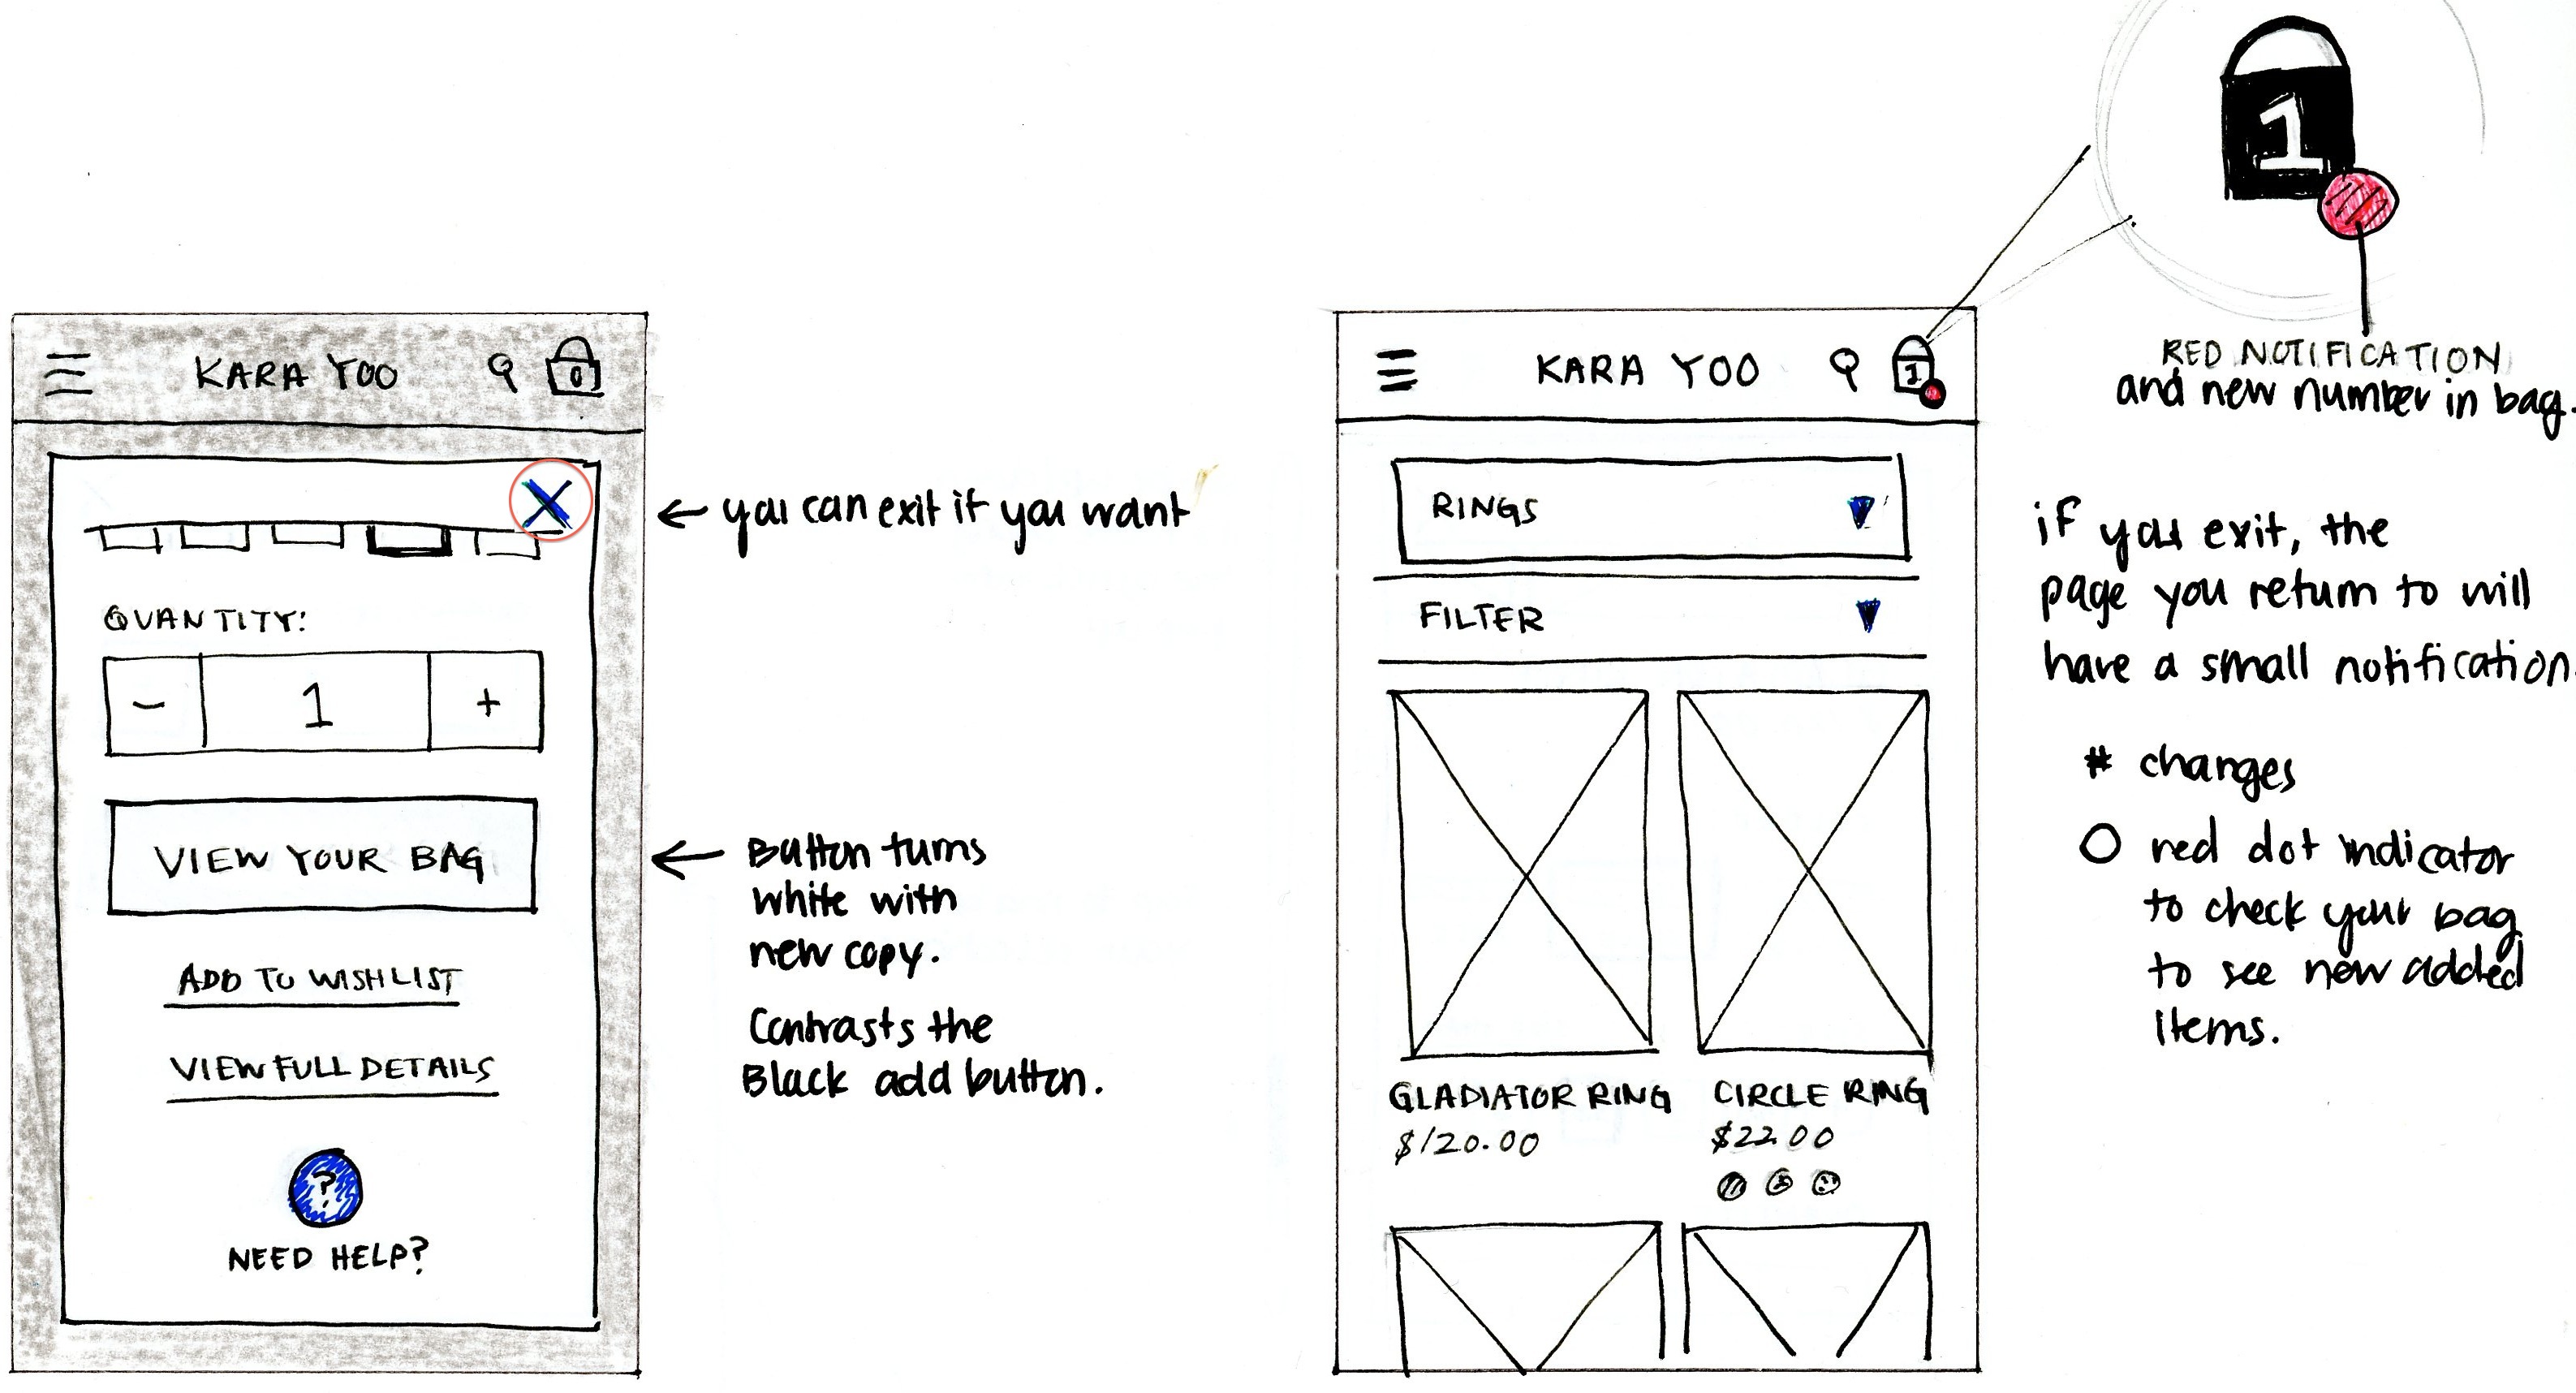 KARA YOO
0
QUANTITY:
- 1 +
VIEW YOUR BAG
ADD TO WISHLIST
VIEW FULL DETAILS
?
NEED HELP?
← you can exit if you want
← Button turns
white with
new copy.
Contrasts the
Black add button.
KARA YOO
1
RINGS
FILTER
GLADIATOR RING
$120.00
CIRCLE RING
$22.00
1
RED NOTIFICATION
and new number in bag.
if you exit, the
page you return to will
have a small notification.
# changes
O red dot indicator
to check your bag
to see new added
items.